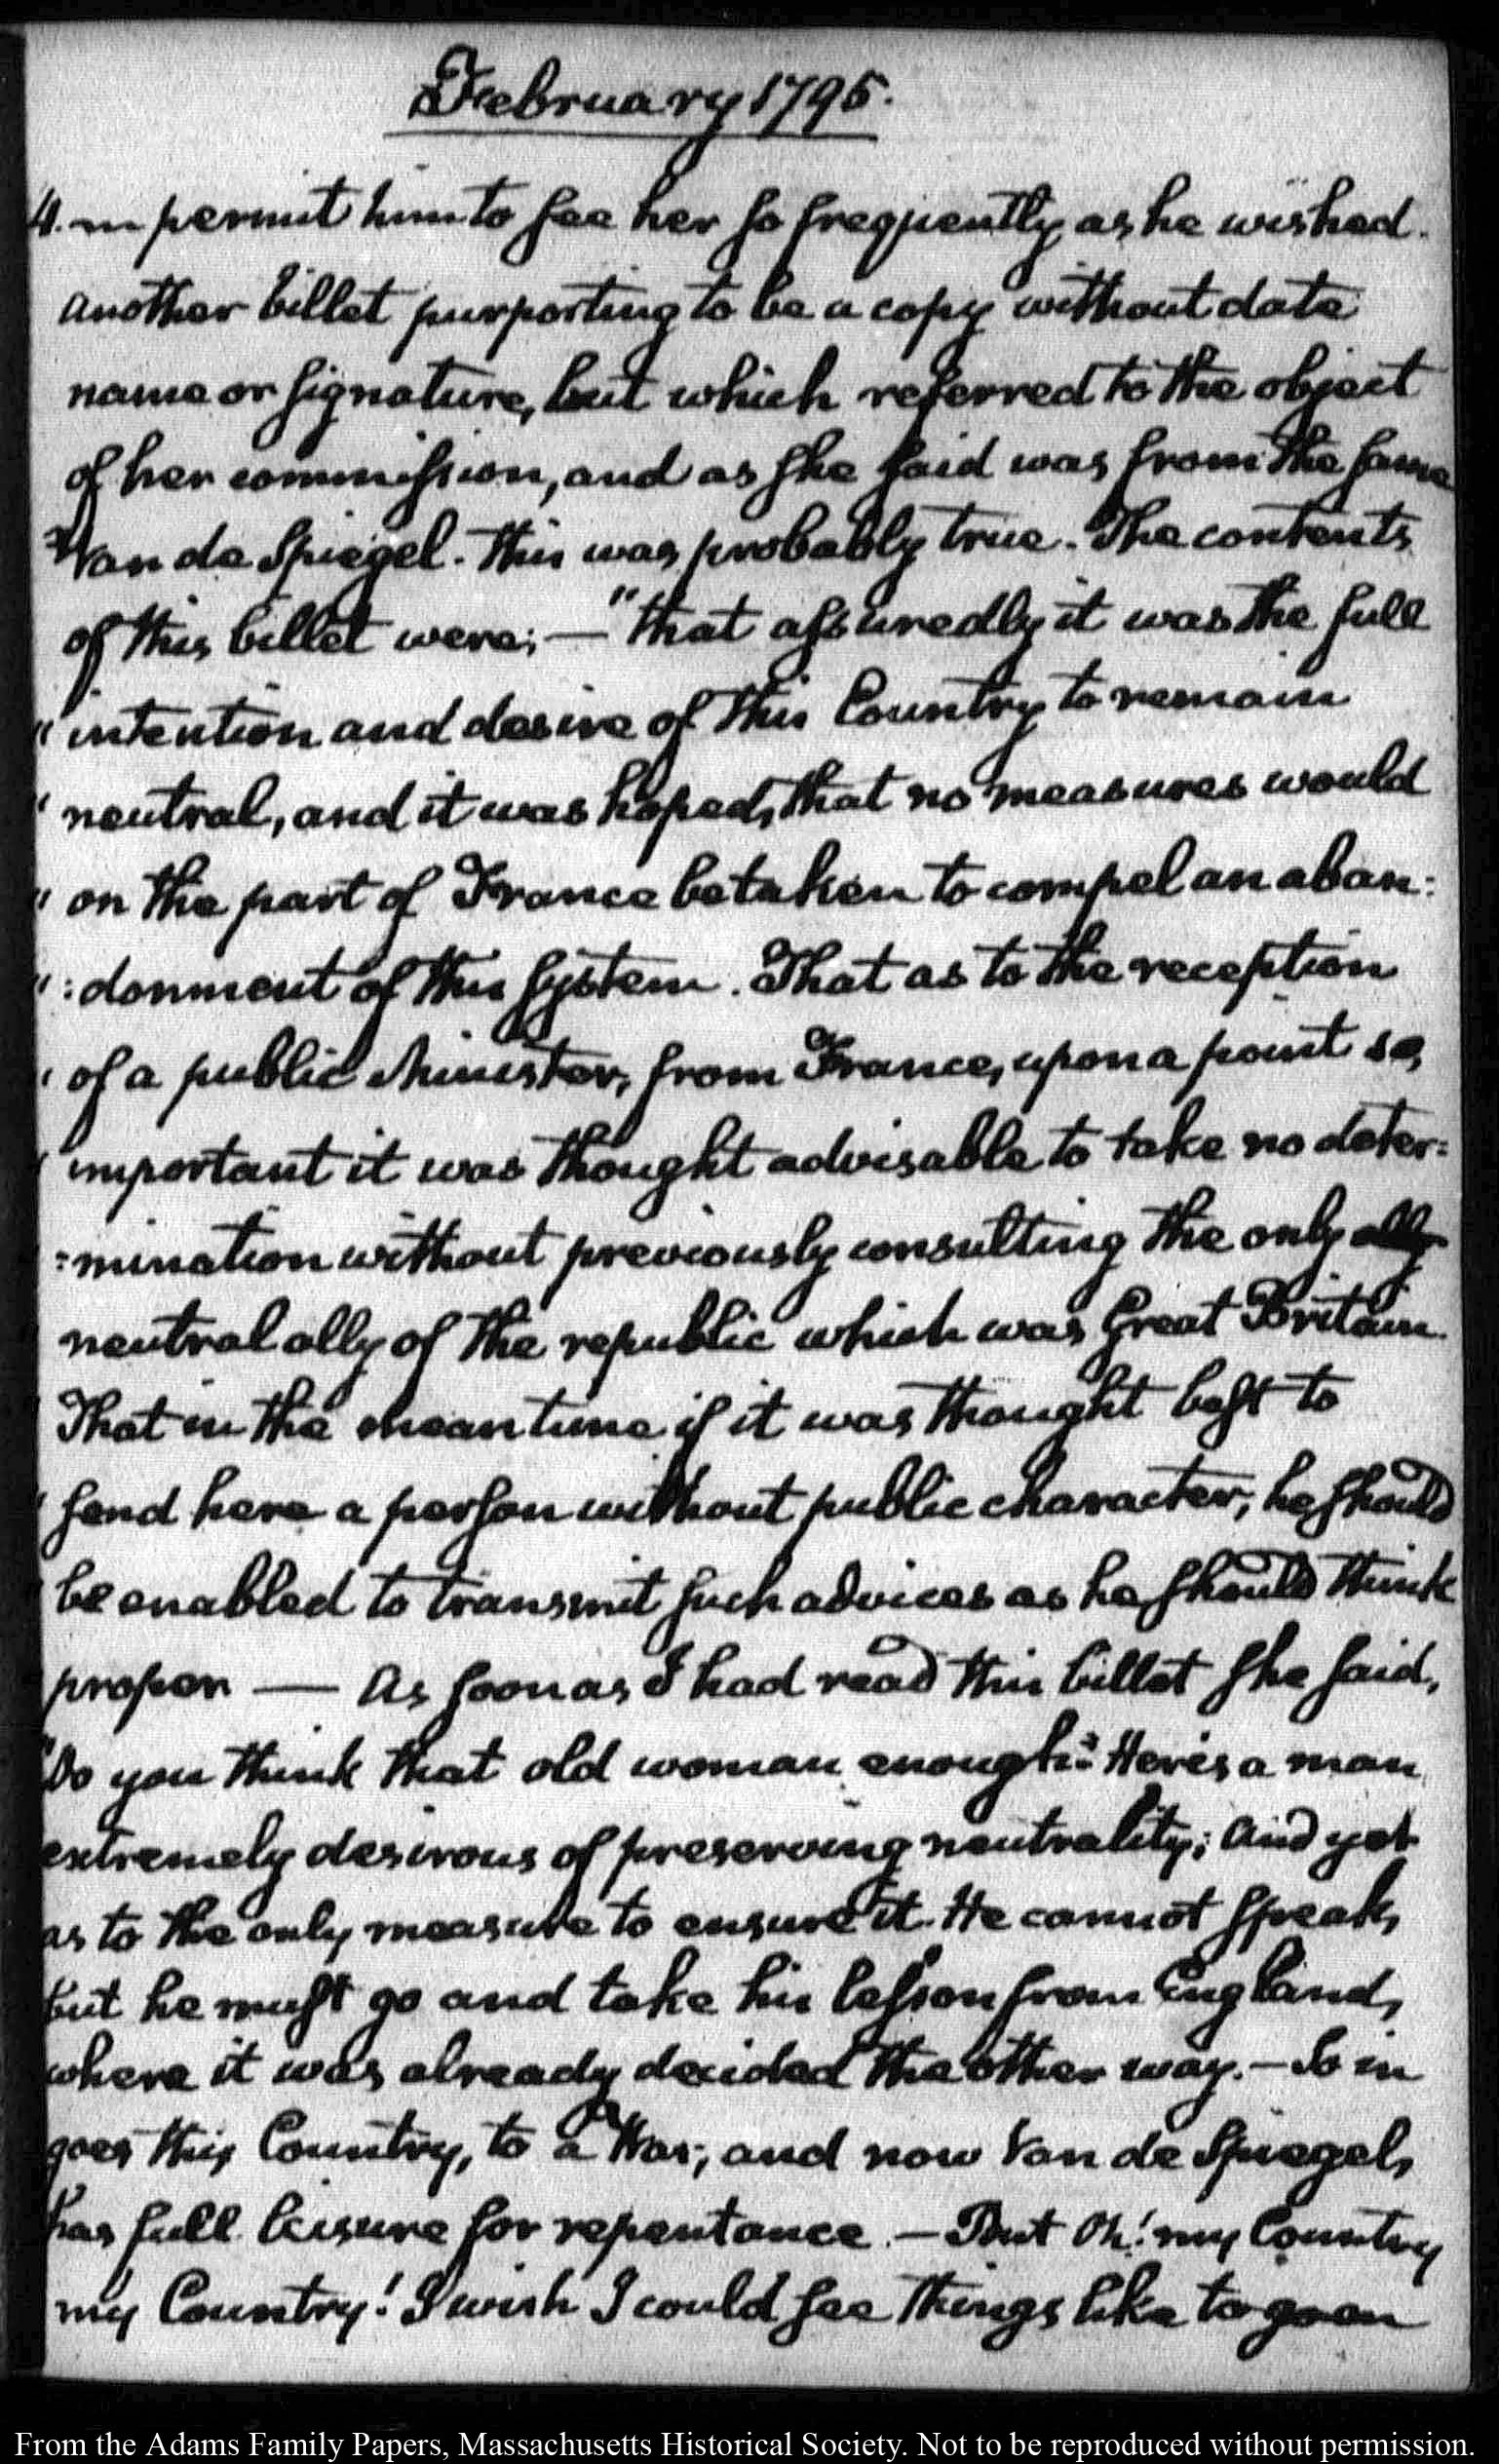 February 1795.
4. m permit him to see her so frequently as he wished.
another billet purporting to be a copy without date
name or signature, but which referred to the object
of her commission, and as she said was from the same
Van de Spiegel. This was probably true. The contents
of this billet were; — "that assuredly it was the full
" intention and desire of this Country to remain
" neutral, and it was hoped, that no measures would
" on the part of France be taken to compel an aban:
" :donment of this system. That as to the reception
" of a public Minister, from France, upon a point so
" important it was thought advisable to take no deter:
:mination without previously consulting the only ally
neutral ally of the republic which was Great Britain.
That in the mean time if it was thought best to
send here a person without public character, he should
be enabled to transmit such advices as he should think
proper — As soon as I had read this billet she said,
"Do you think that old woman enough? Here's a man
extremely desirous of preserving neutrality; and yet
as to the only measure to ensure it. He cannot speak,
but he must go and take his lesson from England,
where it was already decided the other way. — So in
goes this Country, to a War; and now Van de Spiegel,
has full leisure for repentance. — But Oh! my Country
my Country! I wish I could see things like to go on
From the Adams Family Papers, Massachusetts Historical Society. Not to be reproduced without permission.